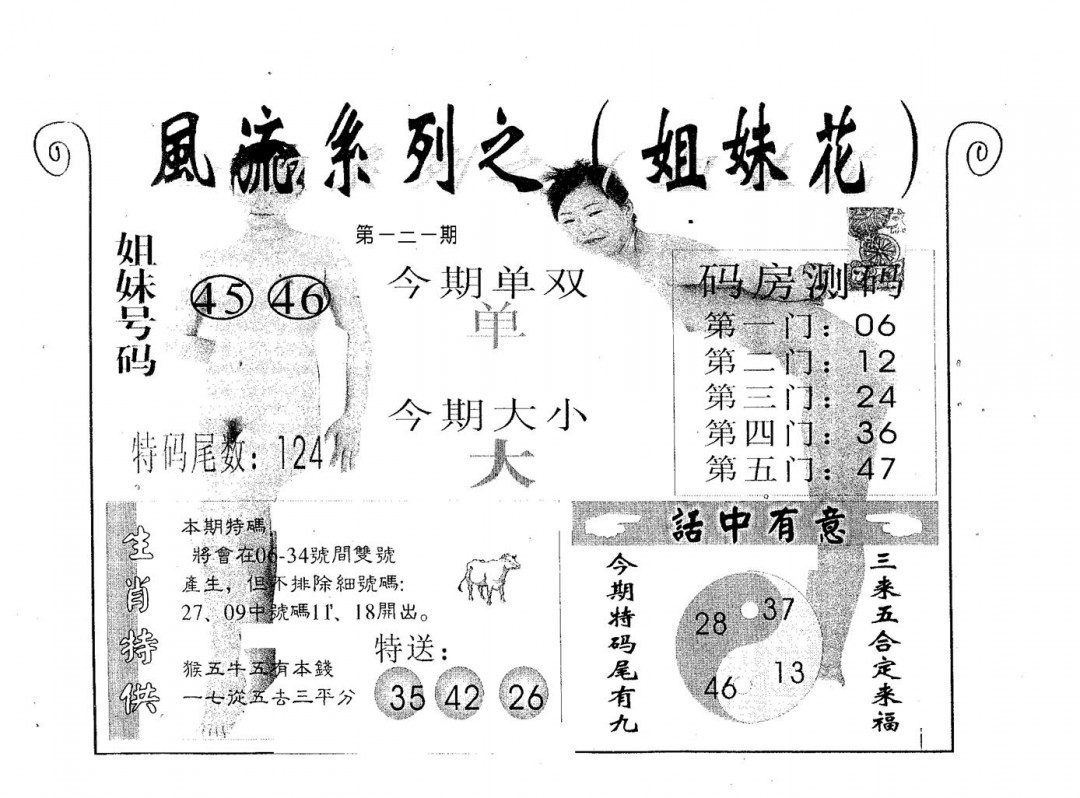 風流系列之（姐妹花）
第一二一期
姐妹号码
45 46
今期单双
单
今期大小
大
特码尾数：124
码房测码
第一门：06
第二门：12
第三门：24
第四门：36
第五门：47
生肖特供
本期特碼，
將會在06-34號間雙號
產生，但不排除細號碼:
27、09中號碼11、18開出。
猴五牛五有本錢
一七從五去三平分
特送：
35 42 26
話中有意
今期特码尾有九
28 37
46 13
三来五合定来福